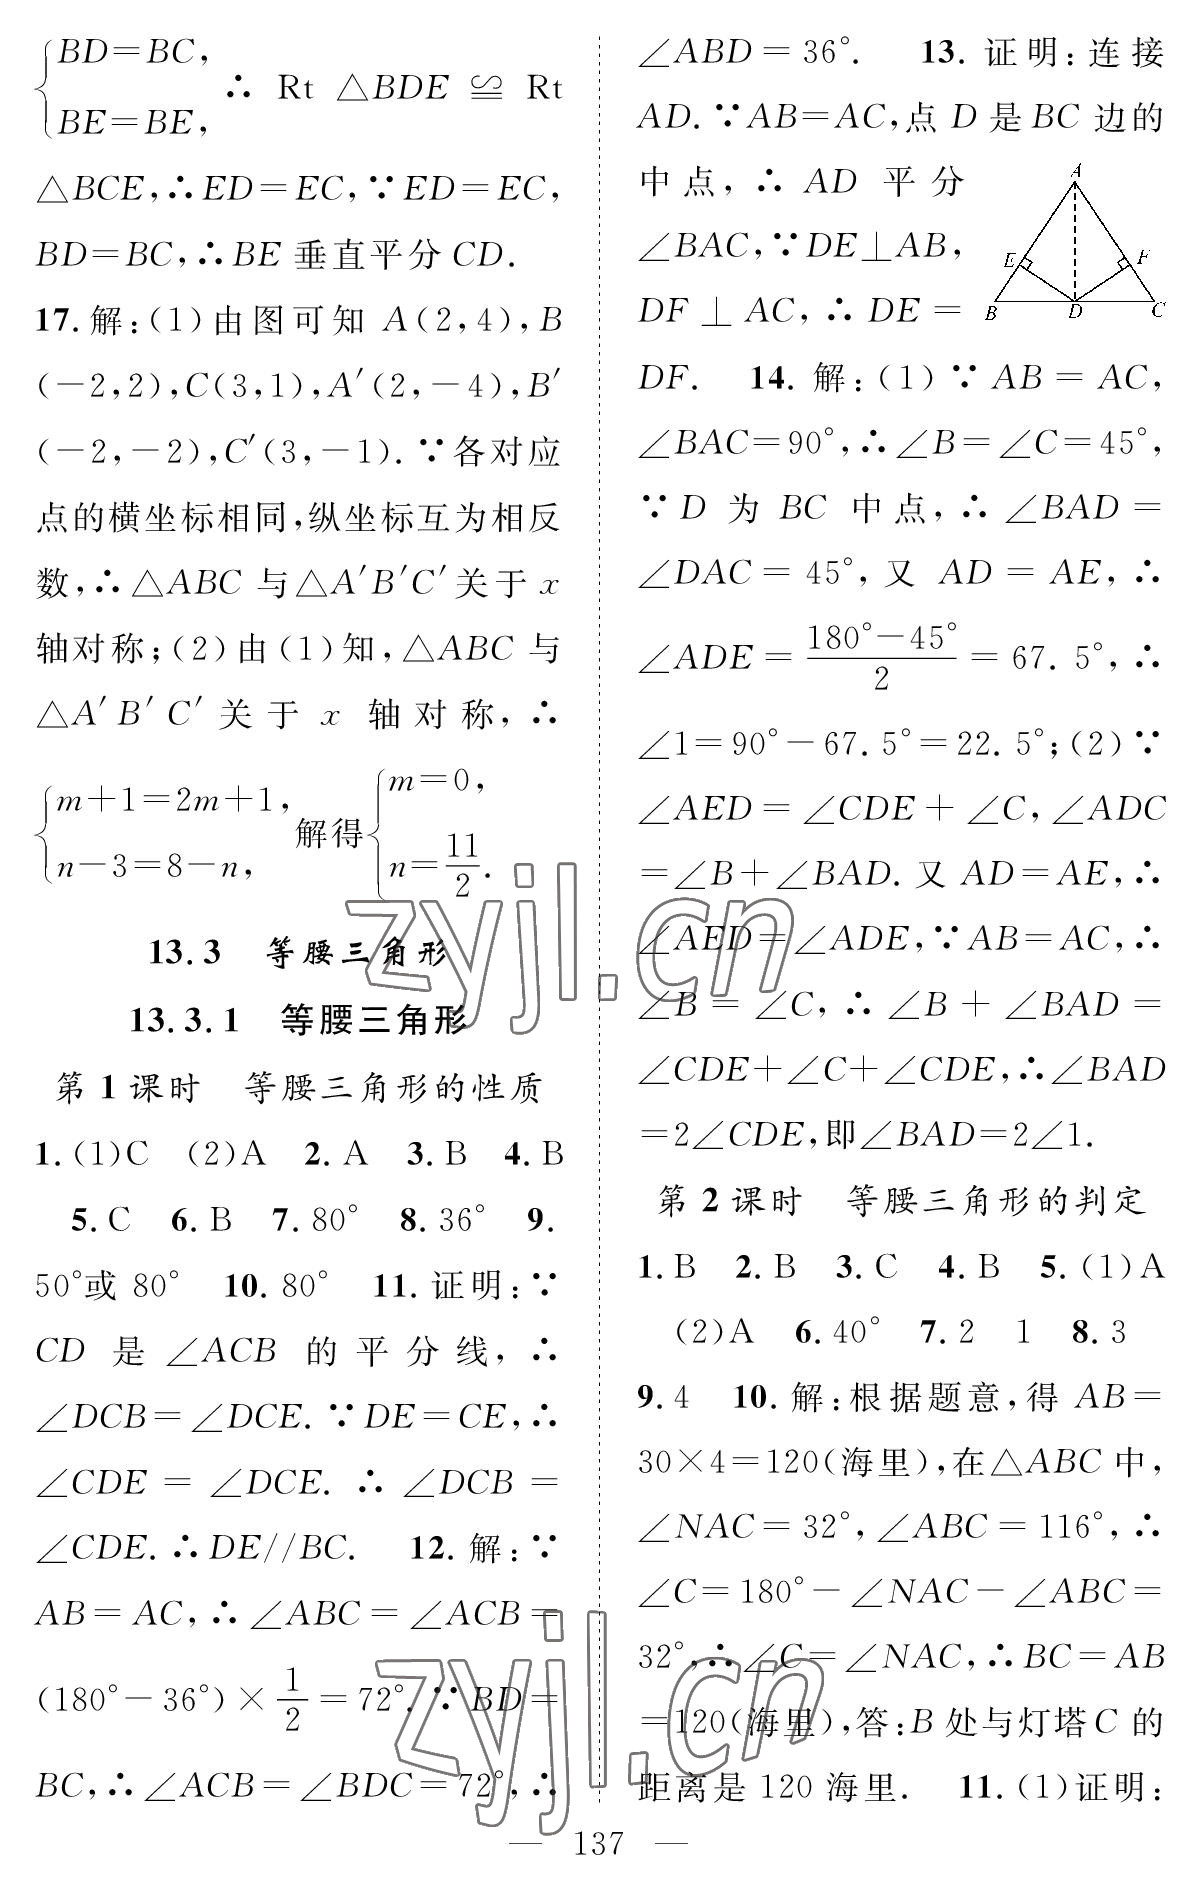 {BD=BC, BE=BE, ∴ Rt △BDE ≌ Rt
△BCE,∴ED=EC,∵ED=EC,
BD=BC,∴BE垂直平分CD.
17.解:(1)由图可知 A(2,4),B
(-2,2),C(3,1),A′(2,-4),B′
(-2,-2),C′(3,-1).∵各对应
点的横坐标相同,纵坐标互为相反
数,∴△ABC与△A′B′C′关于x
轴对称;(2)由(1)知,△ABC与
△A′B′C′关于 x 轴对称,∴
{m+1=2m+1, n-3=8-n, 解得{m=0, n=11/2.
13.3 等腰三角形
13.3.1 等腰三角形
第1课时 等腰三角形的性质
1.(1)C (2)A 2.A 3.B 4.B
5.C 6.B 7.80° 8.36° 9.
50°或80° 10.80° 11.证明:∵
CD 是 ∠ACB 的平分线,∴
∠DCB=∠DCE.∵DE=CE,∴
∠CDE=∠DCE.∴∠DCB=
∠CDE.∴DE//BC. 12.解:∵
AB=AC,∴∠ABC=∠ACB=
(180°-36°)×1/2=72°.∵BD=
BC,∴∠ACB=∠BDC=72°,∴
∠ABD=36°. 13.证明:连接
AD.∵AB=AC,点D是BC边的
中点,∴ AD 平分
∠BAC,∵DE⊥AB,
DF⊥AC,∴DE=
A
E
F
B
D
C
DF. 14.解:(1)∵AB=AC,
∠BAC=90°,∴∠B=∠C=45°,
∵D 为 BC 中点,∴∠BAD=
∠DAC=45°,又 AD=AE,∴
∠ADE=(180°-45°)/2=67.5°,∴
∠1=90°-67.5°=22.5°;(2)∵
∠AED=∠CDE+∠C,∠ADC
=∠B+∠BAD.又AD=AE,∴
∠AED=∠ADE,∵AB=AC,∴
∠B=∠C,∴∠B+∠BAD=
∠CDE+∠C+∠CDE,∴∠BAD
=2∠CDE,即∠BAD=2∠1.
第2课时 等腰三角形的判定
1.B 2.B 3.C 4.B 5.(1)A
(2)A 6.40° 7.2 1 8.3
9.4 10.解:根据题意,得AB=
30×4=120(海里),在△ABC中,
∠NAC=32°,∠ABC=116°,∴
∠C=180°-∠NAC-∠ABC=
32°,∴∠C=∠NAC,∴BC=AB
=120(海里),答:B处与灯塔C的
距离是120海里. 11.(1)证明:
— 137 —
zyjl.cn
zyjl.cn